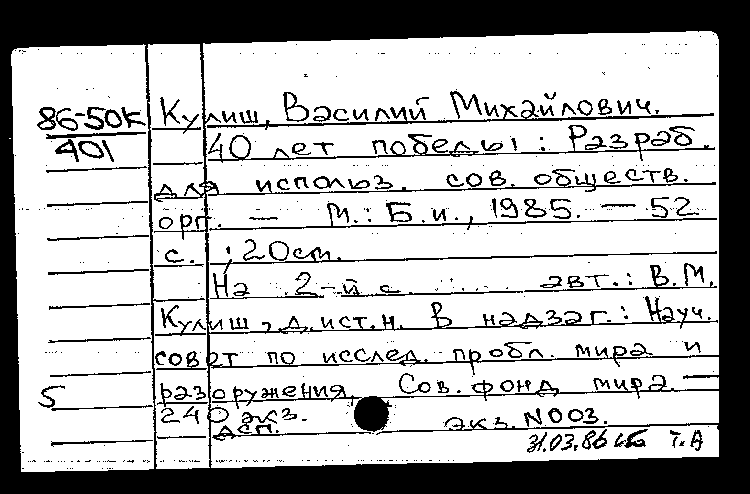 86-50К
401
Кулиш, Василий Михайлович.
40 лет победы : Разраб.
для использ. сов. обществ.
орг. — М. : Б.и., 1985. — 52
с. ; 20 см.
На 2-й с. авт.: В.М.
Кулиш, д.ист.н. В надзаг.: Науч.
совет по исслед. пробл. мира и
разоружения, Сов. фонд мира. —
5
240 экз.
ДСП. экз. N 003.
31.03.86 Т.А